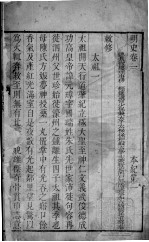 明史卷一　本紀第一
敕修
太祖
太祖開天行道肇紀立極大聖至神仁文義武俊德成
功高皇帝諱元璋字國瑞姓朱氏先世家沛徙句容再
徙泗州父世珍始徙濠州之鍾離生四子太祖其季也
母陳氏方娠夢神授藥一丸置掌中有光吞之寤口餘
香氣及產紅光滿室自是夜數有光起鄰里望見驚以
爲火輒奔救至則無有比長姿貌雄傑奇骨貫頂志意